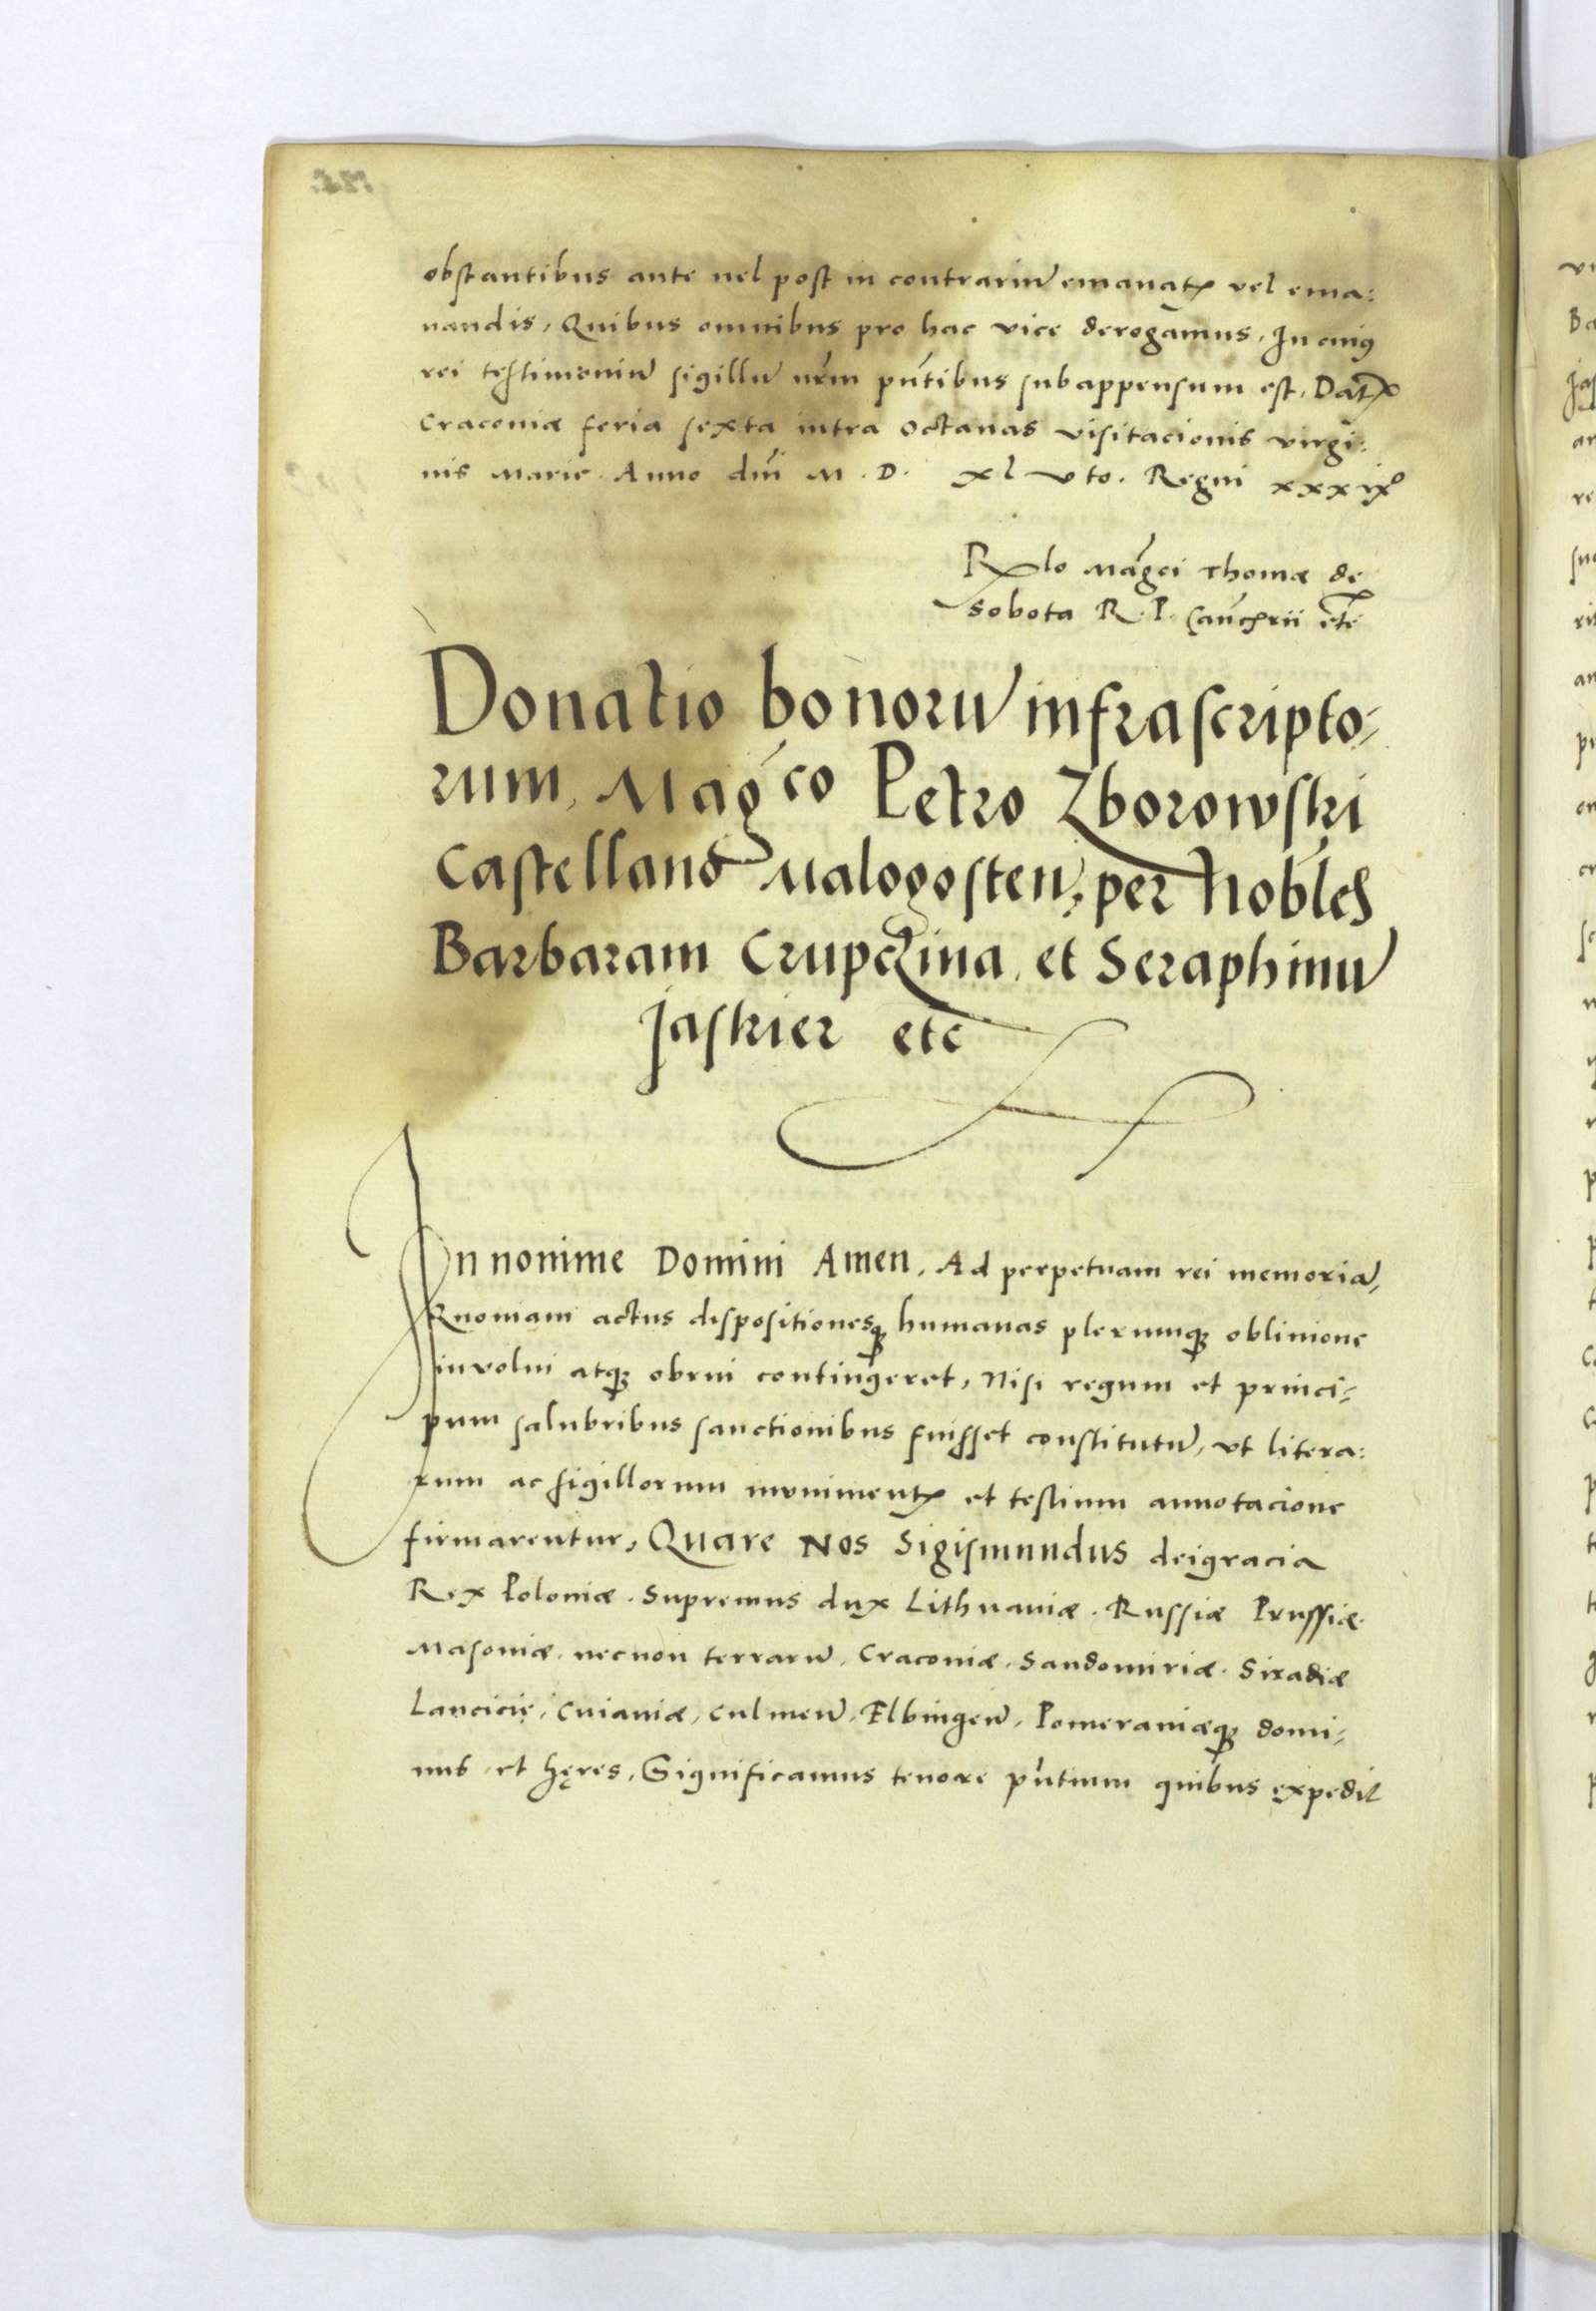 obstantibus ante uel post in contrariū emanatꝭ vel ema:
nandis, Quibus omnibus pro hac vice derogamus, In cuiꝰ
rei testimoniū sigillū nr̄m pn̄tibus subappensum est, Datꝭ
Cracoviæ feria sexta intra Octauas visitacionis virgi:
nis Marie. Anno dn̄i M. D. xl vto. Regni xxxixº
Rlo Mag̃ci Thomæ de
Sobota R. P. Cancꝛ̃rii etc̃
Donatio bonorū infrascripto,
rum, Mag̃co Petro Zborowski
Castellano Malogosteñ, per Nobiles
Barbaram Crupczina et Seraphinū
Jaskier etc
In nomine Domini Amen, Ad perpetuam rei memoriā,
Quoniam actus dispositionesqꝫ humanas plerumqꝫ obliuione
inuolui atqꝫ obrui contingeret, Nisi regum et princi,
pum salubribus sanctionibus fuisset constitutū, vt litera:
rum ac sigillorum munimentꝭ et testium annotacione
firmarentur, Quare Nos Sigismundus deigracia
Rex Poloniæ. Supremus dux Lithuaniæ. Russiæ Prussiæ.
Masouiæ. necnon terrarū, Cracouiæ. Sandomiriæ. Siradiæ
Lancicię, Cuiauiæ, Culmeñ, Elbingeñ, Pomeraniæqꝫ domi,
nus et hęres, Significamus tenore pn̄tium quibus expedit